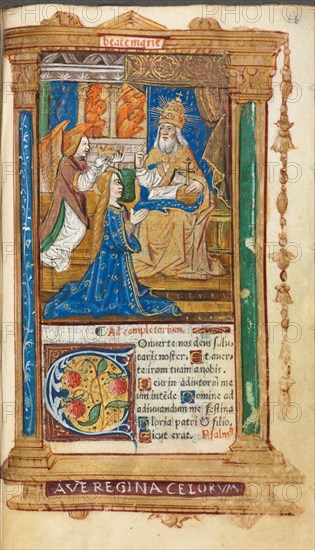 beate marie
Ad completorium.
Onuerte nos deus salu
taris noster. Et auer
te iram tuam a nobis.
Deus in adiutoriū me
um intēde. Domine ad
adiuuandum me festina
Gloria patri & filio.
Sicut erat. Psalmꝰ
AVE REGINA CELORVM